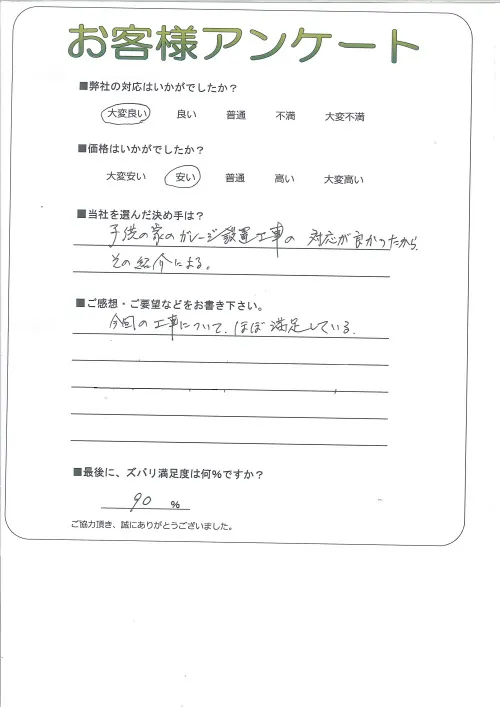 お客様アンケート
■弊社の対応はいかがでしたか？
大変良い 良い 普通 不満 大変不満
■価格はいかがでしたか？
大変安い 安い 普通 高い 大変高い
■当社を選んだ決め手は？
子供の家のガレージ設置工事の 対応が良かったから、
その紹介による。
■ご感想・ご要望などをお書き下さい。
今回の工事について、ほぼ満足している。
■最後に、ズバリ満足度は何％ですか？
90 ％
ご協力頂き、誠にありがとうございました。